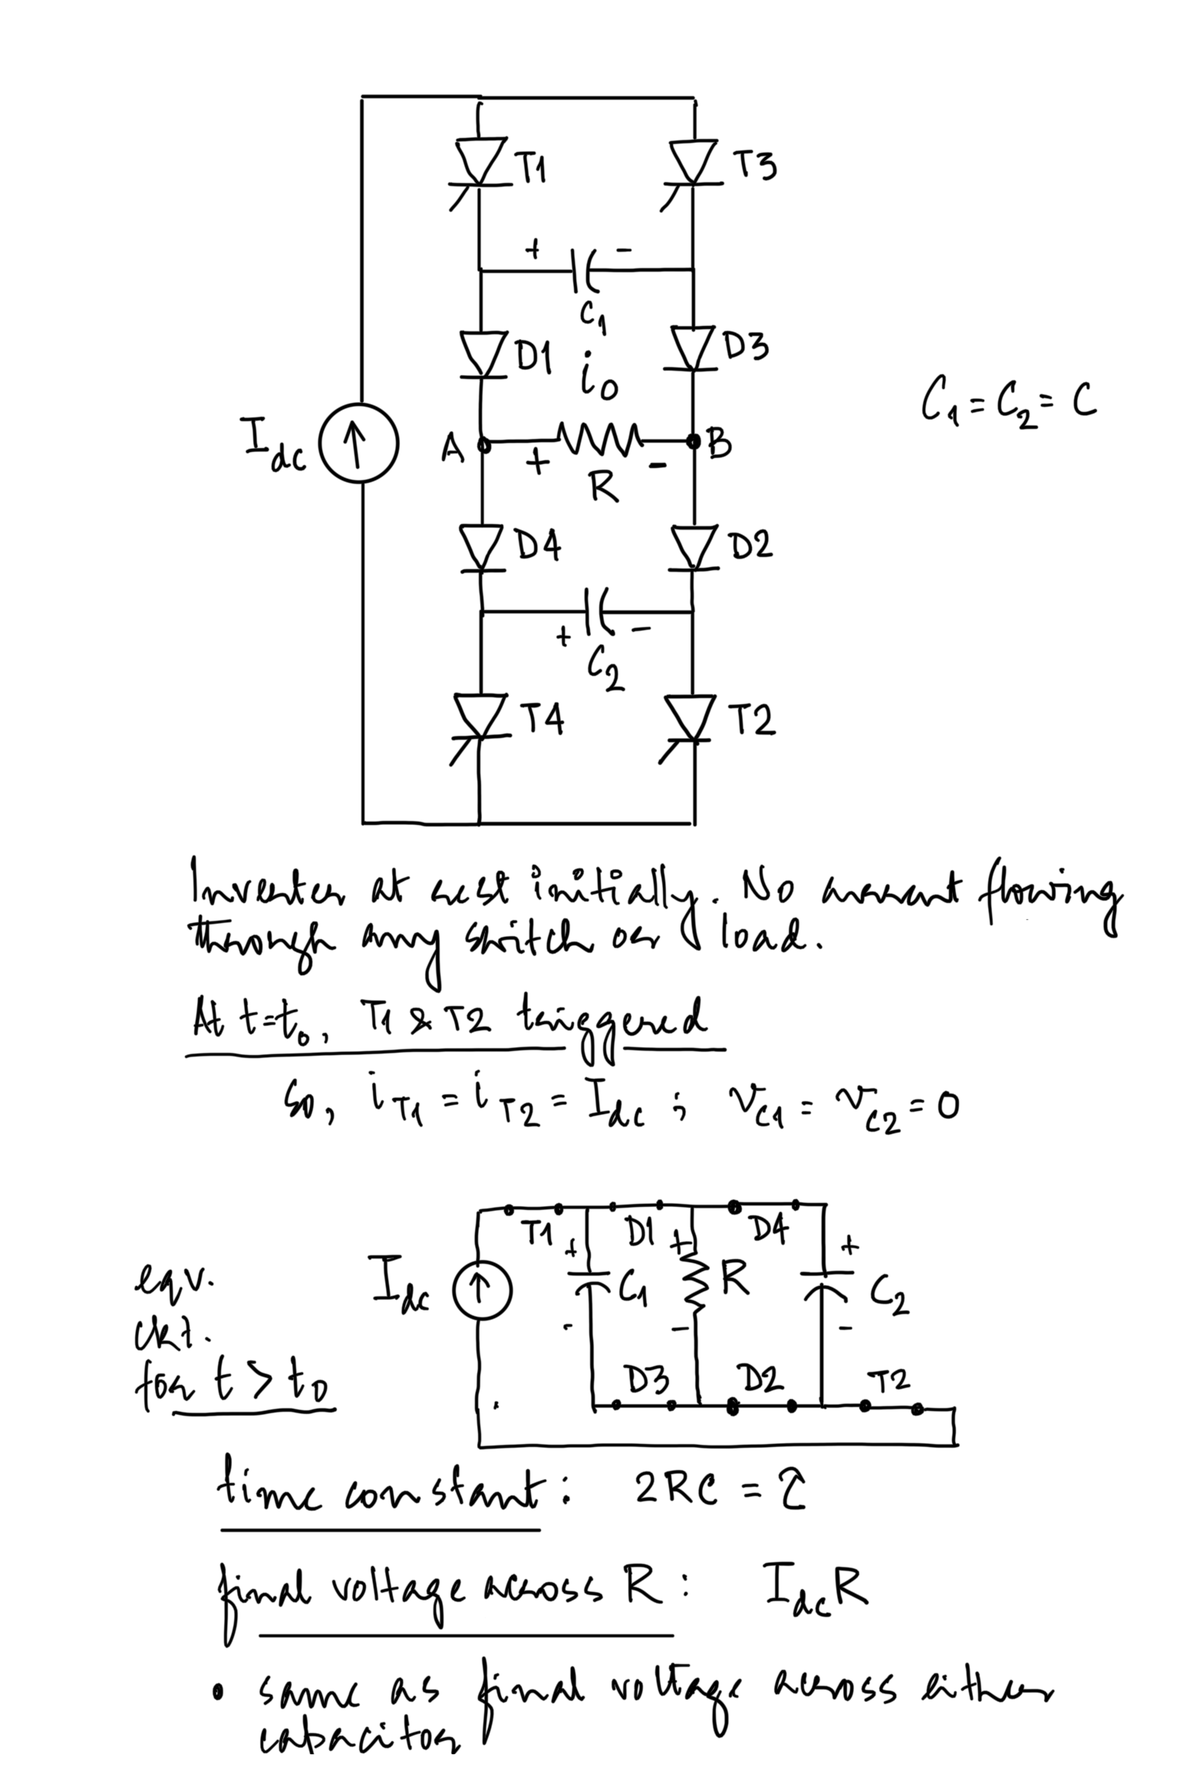 T1
T3
+ -
C1
D1
D3
i0
C1 = C2 = C
Idc
A
B
+ -
R
D4
D2
+ -
C2
T4
T2
Inverter at rest initially. No current flowing
through any switch or load.
At t=t0, T1 & T2 triggered
So, iT1 = iT2 = Idc ; vC1 = vC2 = 0
T1 D1 D4
+ + +
eqv.
ckt.
for t > t0
Idc
C1
R
C2
- - -
D3 D2 T2
time constant: 2RC = τ
final voltage across R: IdcR
• same as final voltage across either
capacitor